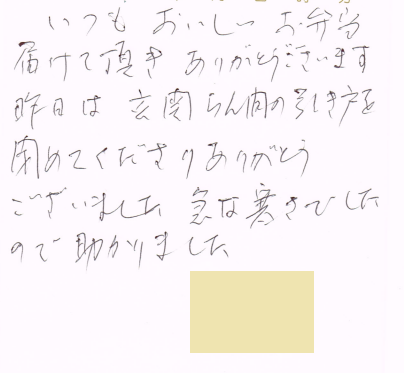 いつも おいしい お弁当
届けて頂き ありがとうございます
昨日は 玄関らん間の引き戸を
閉めてくださりありがとう
ございました 急な寒さでした
ので助かりました